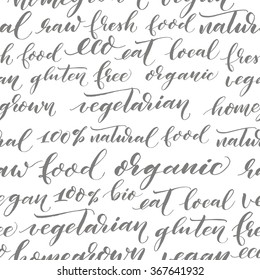 homegrown vegan
al raw fresh food natural
sh food eco eat local fresh
an gluten free organic vegan
grown vegetarian homeg
ral 100% natural food natu
aw food organic
egan 100% bio eat local ve
vegetarian gluten free
o homegrown vegan eco
www.shutterstock.com · 367641932